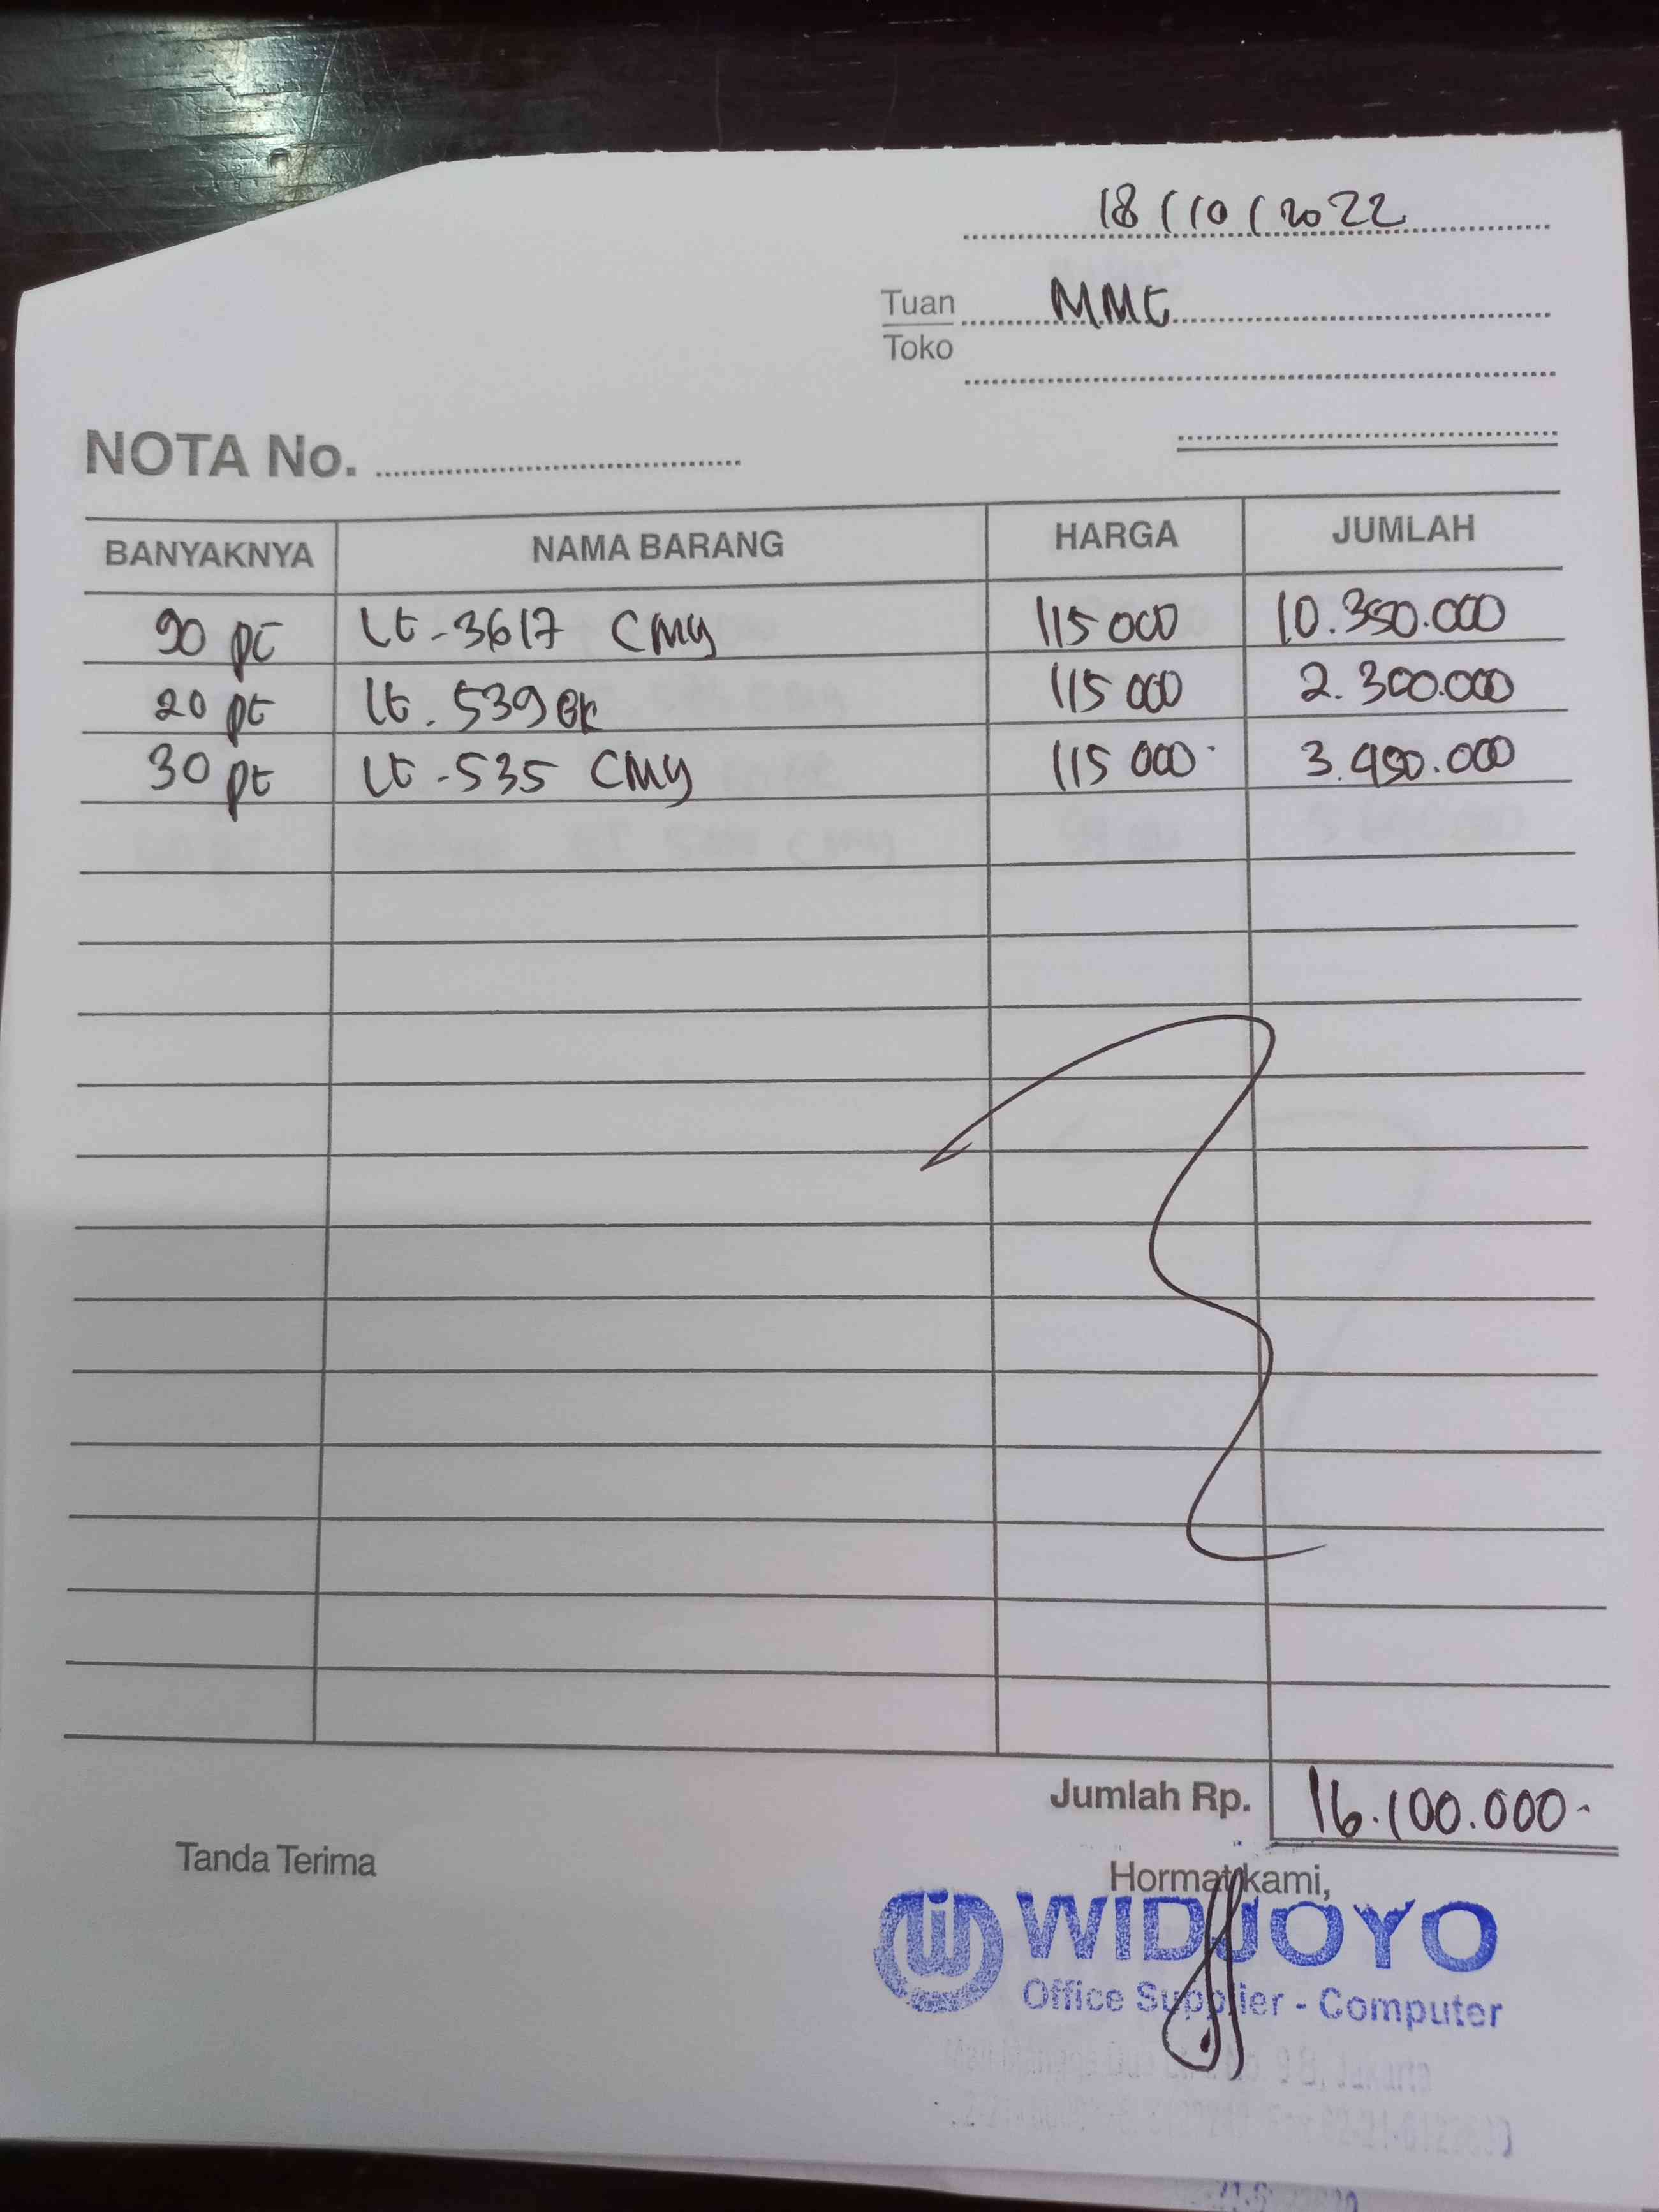 18/10/2022
Tuan MMt
Toko
NOTA No.
BANYAKNYA NAMA BARANG HARGA JUMLAH
90 pt Lt-3617 CMy 115 000 10.350.000
20 pt Lt. 539 BK 115 000 2.300.000
30 pt Lt-535 CMy 115 000 3.450.000
Jumlah Rp. 16.100.000-
Tanda Terima Hormat kami,
WIDJOYO
Office Supplier - Computer
9 B, Jakarta